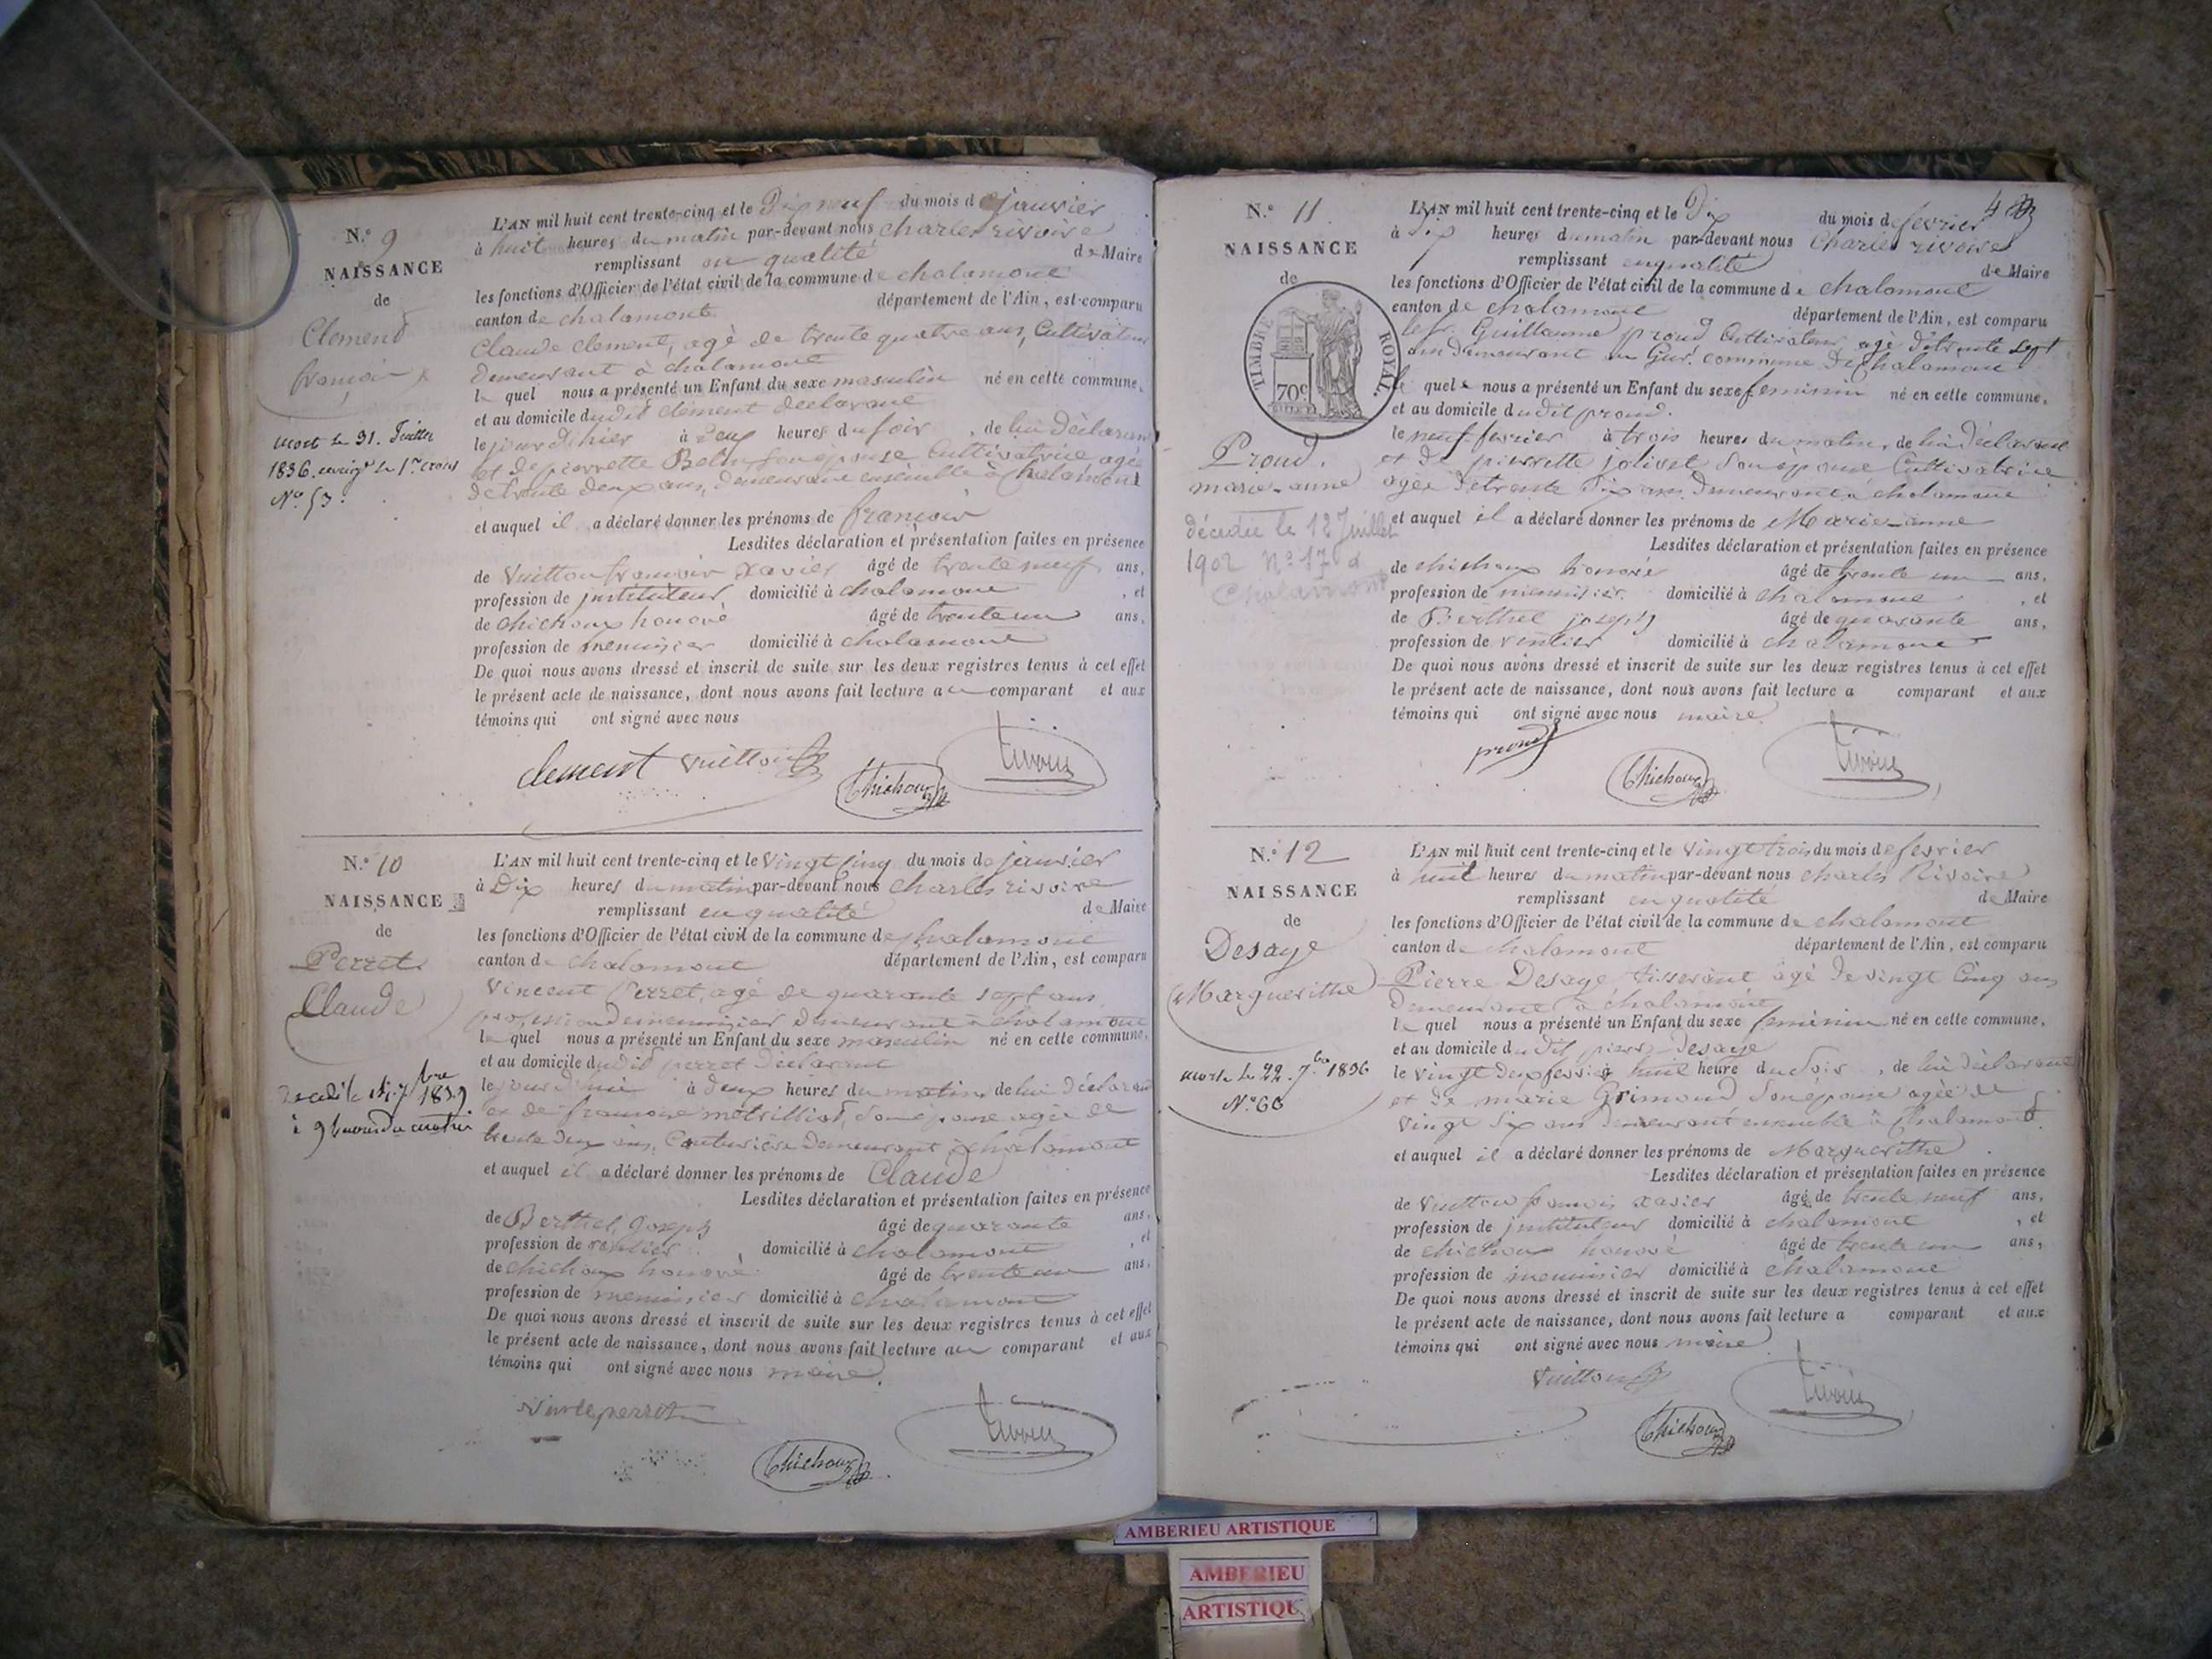 N.º 9
NAISSANCE
de
Clement
françois
mort le 31. Juillet
1836.
Nº 53.
L'AN mil huit cent trente-cinq et le Dix neuf du mois de janvier
à huit heures du matin par-devant nous charles rivoire
remplissant en qualité de Maire
les fonctions d'Officier de l'état civil de la commune de chalamont
canton de chalamont département de l'Ain, est comparu
Claude clement, agé de trente quatre ans, Cultivateur
demeurant à chalamont
le quel nous a présenté un Enfant du sexe masculin né en cette commune,
et au domicile dudit clement declarant
le jour d'hier à deux heures du soir, de lui déclarant
et de pierrette son épouse Cultivatrice agée
de trente deux ans, demeurant ensemble à chalamont
et auquel il a déclaré donner les prénoms de françois
Lesdites déclaration et présentation faites en présence
de Vuitton françois xavier âgé de trente neuf ans,
profession de instituteur domicilié à chalamont, et
de chichoux honoré âgé de trente un ans,
profession de menuisier domicilié à chalamont
De quoi nous avons dressé et inscrit de suite sur les deux registres tenus à cet effet
le présent acte de naissance, dont nous avons fait lecture au comparant et aux
témoins qui ont signé avec nous
clement Vuitton Chichoux rivoire
N.º 10
NAISSANCE
de
Perret
Claude
1839
à 9 heures du matin
L'AN mil huit cent trente-cinq et le Vingt Cinq du mois de janvier
à Dix heures du matin par-devant nous charles rivoire
remplissant en qualité de Maire
les fonctions d'Officier de l'état civil de la commune de chalamont
canton de chalamont département de l'Ain, est comparu
Vincent Perret, agé de quarante sept ans,
profession de menuisier demeurant à chalamont
le quel nous a présenté un Enfant du sexe masculin né en cette commune,
et au domicile dudit perret déclarant
le jour d'hier à deux heures du matin, de lui déclarant
et de françoise son épouse agée de
trente deux ans, Couturière demeurant à chalamont
et auquel il a déclaré donner les prénoms de Claude
Lesdites déclaration et présentation faites en présence
de Berthel Joseph âgé de quarante ans,
profession de rentier domicilié à chalamont, et
de chichoux honoré âgé de trente un ans,
profession de menuisier domicilié à chalamont
De quoi nous avons dressé et inscrit de suite sur les deux registres tenus à cet effet
le présent acte de naissance, dont nous avons fait lecture au comparant et aux
témoins qui ont signé avec nous maire.
perret
Chichoux rivoire
N.º 11
NAISSANCE
de
TIMBRE ROYAL
70c
Proud.
marie-anne
décédée le 12 Juillet
1902 Nº 17 à
Chalamont
L'AN mil huit cent trente-cinq et le Dix du mois de fevrier
à Dix heures du matin par-devant nous Charles rivoire
remplissant en qualité de Maire
les fonctions d'Officier de l'état civil de la commune de chalamont
canton de chalamont département de l'Ain, est comparu
le sr. Guillaume proud Cultivateur agé de trente sept
ans demeurant au commune de chalamont
le quel nous a présenté un Enfant du sexe feminin né en cette commune,
et au domicile dudit proud.
le neuf fevrier à trois heures du matin, de lui déclarant
et de pierrette jolivet son épouse Cultivatrice
agée de trente six ans demeurant à chalamont
et auquel il a déclaré donner les prénoms de Marie-anne
Lesdites déclaration et présentation faites en présence
de chichoux honoré âgé de trente un ans,
profession de menuisier domicilié à chalamont, et
de Berthel joseph âgé de quarante ans,
profession de rentier domicilié à chalamont
De quoi nous avons dressé et inscrit de suite sur les deux registres tenus à cet effet
le présent acte de naissance, dont nous avons fait lecture a comparant et aux
témoins qui ont signé avec nous maire.
proud Chichoux rivoire
N.º 12
NAISSANCE
de
Desaye
Marguerithe
morte le 22. 7bre 1836
Nº 66
L'AN mil huit cent trente-cinq et le Vingt trois du mois de fevrier
à huit heures du matin par-devant nous charles Rivoire
remplissant en qualité de Maire
les fonctions d'Officier de l'état civil de la commune de chalamont
canton de chalamont département de l'Ain, est comparu
Pierre Desaye, tisserant agé de vingt cinq ans
demeurant à chalamont
le quel nous a présenté un Enfant du sexe feminin né en cette commune,
et au domicile dudit pierre Desaye
le vingt deux fevrier à huit heure du soir, de lui déclarant
et de marie Grimoud son épouse agée de
vingt six ans demeurant ensemble à Chalamont.
et auquel il a déclaré donner les prénoms de Marguerithe
Lesdites déclaration et présentation faites en présence
de Vuitton françois xavier âgé de trente neuf ans,
profession de instituteur domicilié à chalamont, et
de chichoux honoré âgé de trente un ans,
profession de menuisier domicilié à chalamont
De quoi nous avons dressé et inscrit de suite sur les deux registres tenus à cet effet
le présent acte de naissance, dont nous avons fait lecture a comparant et aux
témoins qui ont signé avec nous maire
Vuitton Chichoux rivoire
AMBERIEU ARTISTIQUE
AMBERIEU
ARTISTIQUE